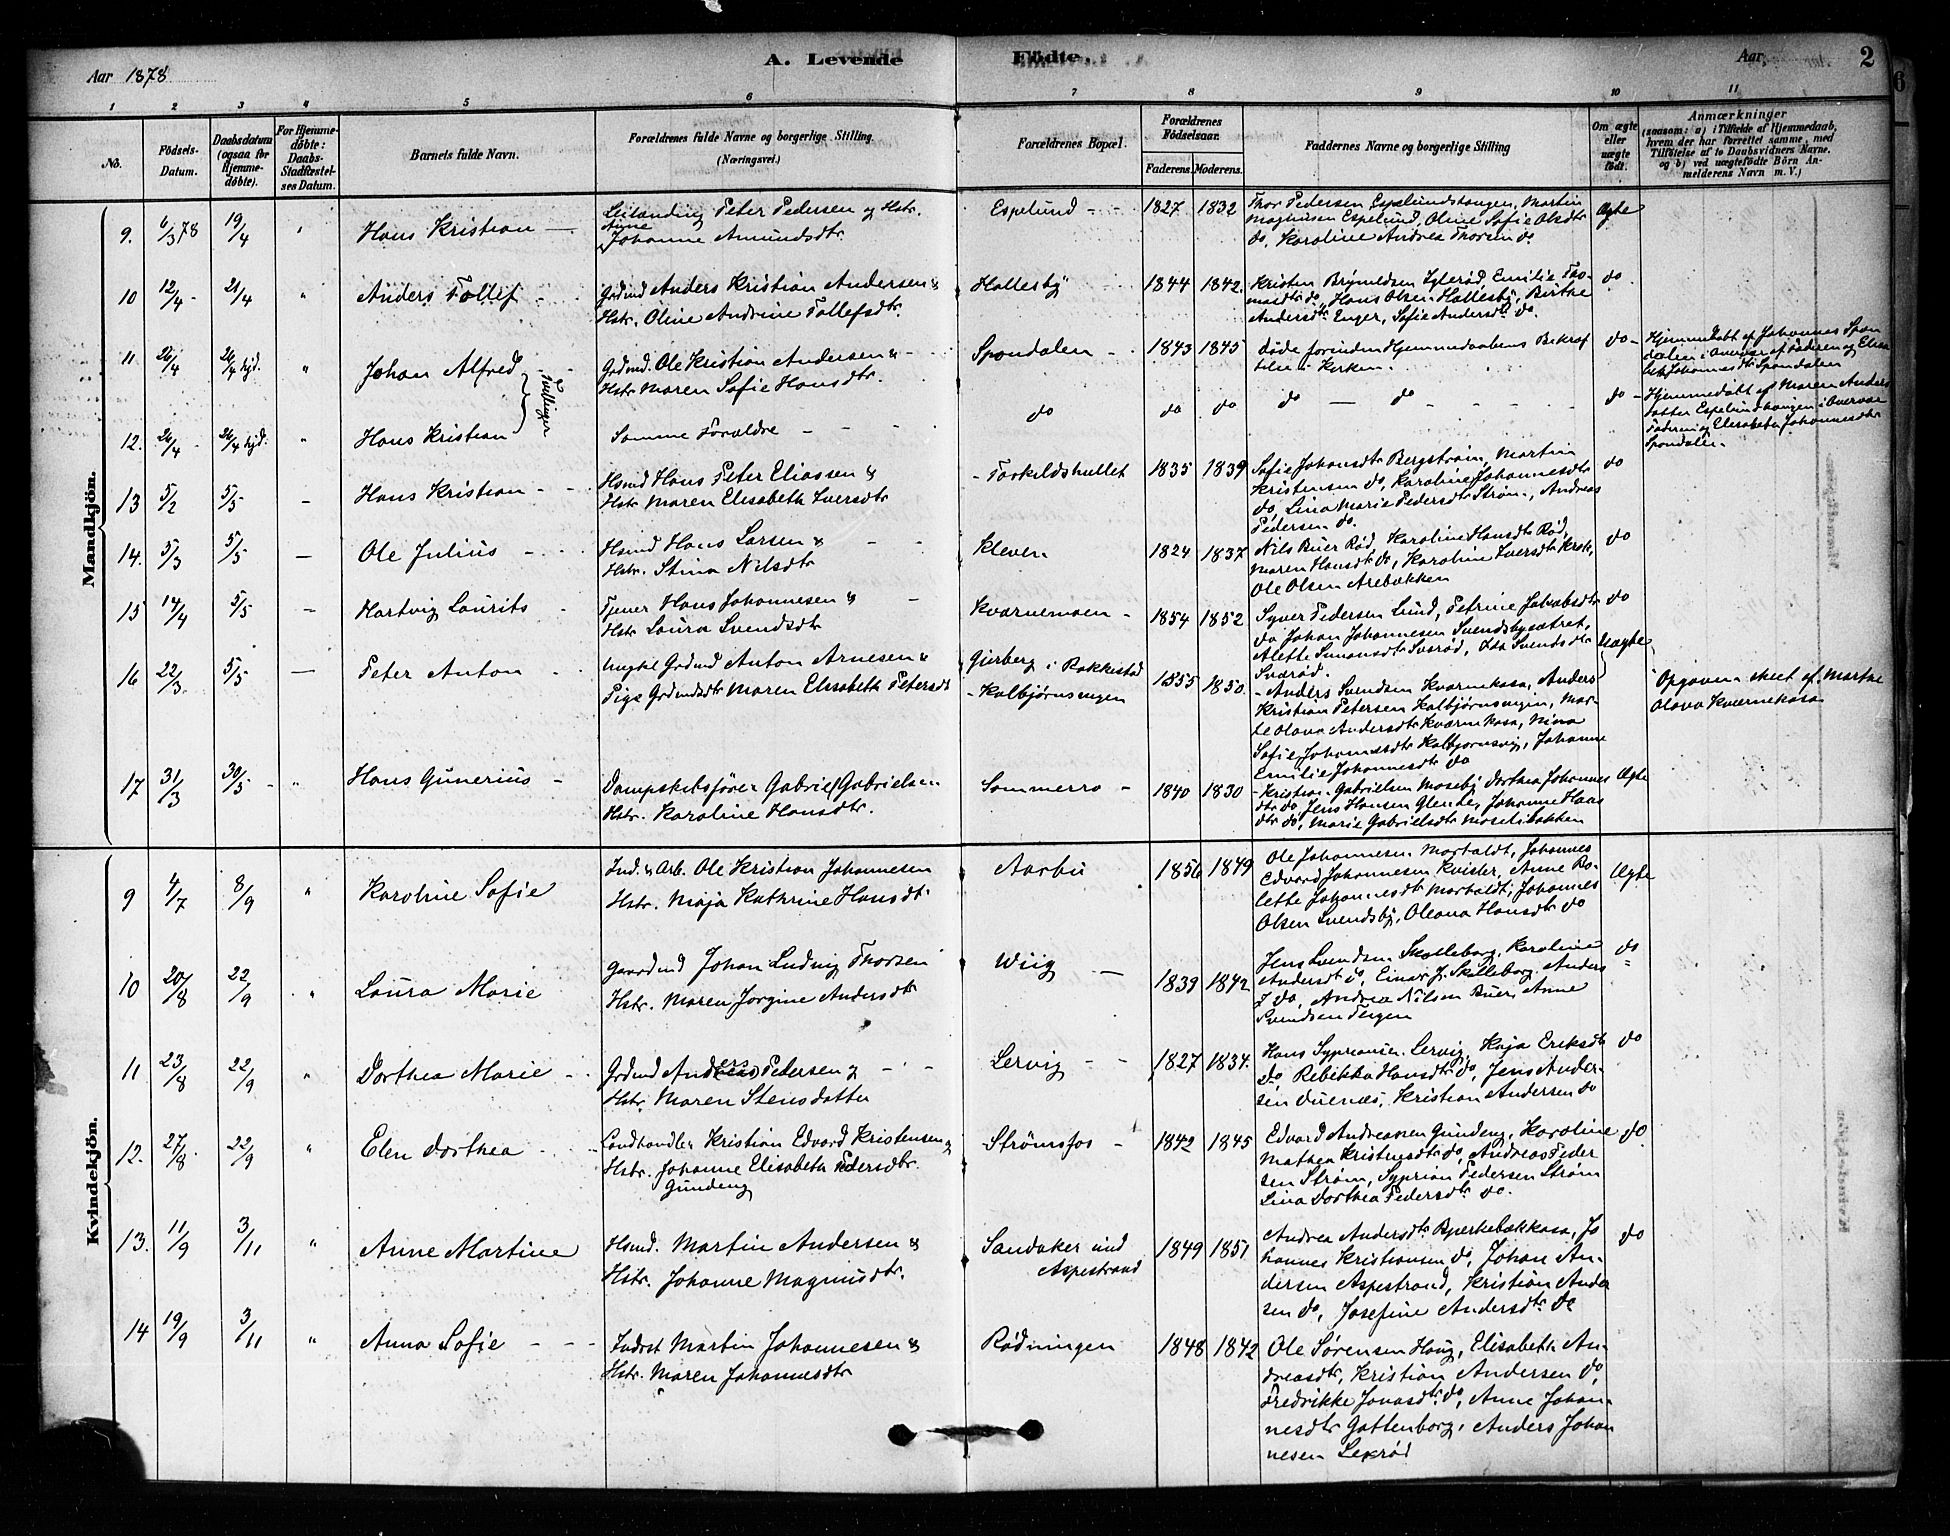 Aar 1878
A. Levende Födte.
Aar
2
1 2 3 4 5 6 7 8 9 10 11
No.
Födsels-Datum.
Daabsdatum (ogsaa for Hjemme-döbte).
For Hjemme-döbte: Daabs-Stadfæstel-ses Datum.
Barnets fulde Navn.
Forældrenes fulde Navne og borgerlige Stilling.
(Næringsvei.)
Forældrenes Bopæl.
Forældrenes Födselsaar.
Faderens. Moderens.
Faddernes Navne og borgerlige Stilling
Om ægte eller uægte født.
Anmærkninger
(saasom: a) i Tilfælde af Hjemmedaab, hvem der har forrettet samme, med Tilföielse af to Daabsvidners Navne, og b) ved uægtefödte Börn An-melderens Navn m. V.)
Mandkjön.
9. 6/3 78 19/4 " Hans Kristian Peter Pedersen og Hstr. Anne Johanne Amundsdtr. Espelund 1827 1832 Thor Pedersen Espelundshaugen, Martin
Magnusen Espelund, Oline Sofie Olsdtr
do, Karoline Andrea Thorsen do Ægte
10 12/4 21/4 " Anders Tollef Grdmd Anders Kristian Andersen &
Hstr. Oline Andrine Tollefsdtr. Hallesby 1844 1842. Kristen Brynildsen, Emilie Tho-
masdtr do, Hans Olsen Hallesby, Birthe
Andersdtr Enger, Sofie Andersdtr do. do
11. 24/4 hjd. " Johan Alfred Tvillinger Grdmd. Ole Kristian Andersen &
Hstr Maren Sofie Hansdtr. Spondalen 1843 1845 Døde forinden Hjemmedaabens Bekræf
telse i Kirken. do Hjemmedøbt af Johannes Spon
dalen i Overvær af Faderen og Elisa
beth Johannesdtr Spondalen
12. 24/4 hjd. " Hans Kristian Samme Forældre do do do do do do Hjemmedøbt af Maren Anders
datter Espelundhaugen i Overvær
Faderen og Elisabeth Johannesdtr
Spondalen.
13 5/2 5/5 Hans Kristian Hsmd Hans Peter Eliassen &
Hstr Maren Elisabeth Iversdtr Torkildshullet 1835 1839 Sofie Johansdtr Bergstrøm, Martin
Kristensen do, Karoline Johannesdtr
do, Lina Marie Pedersdtr Strøm, Andreas
Pedersen do. do
14. 5/3 5/5 Ole Julius Hsmd Hans Larsen &
Hstr. Stina Nilsdtr Kleven 1824 1837 Nils Buer Rød, Karoline Hansdtr Rød,
Maren Hansdtr do, Karoline Iversdtr
Ole Olsen Arebækken do
15 14/4 5/5 Hartvig Laurits Tjener Hans Johannesen &
Hstr Laura Svendsdtr Kværnemoen 1854 1852 Syver Pedersen Lund, Petrine Jakobsdtr
do Johan Johannesen Svendsbysætret,
Alette Simonsdtr Sværød, Ida Svendsdtr
Sværød. do
16 22/3 5/5 Peter Anton Ungkl Grdmd Anton Arnesen &
Pige Grdmdsdtr Maren Elisabeth Petersdtr Gjerberg i Rakkestad
Kolbjørnsvigen 1855 1850. Anders Svendsen Kværnekasa, Anders
Kristian Petersen Kolbjørnsvigen, Mar-
te Olava Andersdtr Kværnekasa, Nina
Sofie Johannesdtr Kolbjørnsvig, Johanne
Emilie Johannesdtr do Uægte Opgaven skeet af Marthe
Olava Kværnekasa
17 31/3 30/5 " Hans Gunerius Dampskibsfører Gabriel Gabrielsen
Hstr. Karoline Hansdtr. Sommerro 1840 1830 Kristian Gabrielsen Moseby Dorthea Johannes
dtr do, Jens Hansen Glende, Johanne Hans
dtr do, Marie Gabrielsdtr Ægte
Kvindekjön.
9 4/7 8/9 " Karoline Sofie Ind. & Arb. Ole Kristian Johannesen
Hstr. Maja Kathrine Hansdtr Aarbu 1856 1849 Ole Johannesen Mortvedt, Johannes
Edvard Johannesen Kvister, Anne Bo-
lette Johannesdtr, Johannes
Olsen Svendsby, Oleana Hansdtr do Ægte
10 20/8 22/9 " Laura Marie Gaardmd Johan Ludvig Thorsen
Hstr. Maren Jorgine Andersdtr Wiig 1839 1842 Jens Svendsen Skolleborg, Karoline
Andersdt do, Einar J. Skolleborg, Anders
J do, Andrea Nilsen Buer, Anne
Svendsen do
11 23/8 22/9 " Dorthea Marie Grdmd Anders Pedersen og
Hstr. Maren Stensdatter Lervig 1827 1834. Hans Syprians. Lervig, Kaja Eriksdtr
do, Rebikka Hansdtr do, Jens Ander-
sen Buenæs, Kristian Andersen do do
12. 27/8 22/9 " Elen Dorthea Landhandler Kristian Edvard Kristensen &
Hstr. Johanne Elisabeth Pedersdtr.
Gundeng Strømsfos 1842 1845 Edvard Andreasen Gundeng, Karoline
Mathea Kristensdtr do, Andreas Peder
sen Strøm, Syprian Pedersen Strøm
Lina Dorthea Pedersdtr do. do
13. 11/9 3/11 " Anne Martine Hsmd. Martin Andersen &
Hstr. Johanne Magnusdtr. Sandaker und
Aspestrand 1849 1851 Andrea Andersdtr Bjerkebækkasa, Jo
hannes Kristiansen do, Johan An-
dersen Aspestrand, Kristian Ander
sen do, Josefine Andersdtr do do
14 19/9 3/11 " Anna Sofie Inderst Martin Johannesen &
Hstr. Maren Johannesdtr Rødningen 1848 1842 Ole Sørensen Haug, Elisabeth An-
dreasdtr, Kristian Andersen do,
Fredrikke Jonasdtr do, Anne Johan-
nesdtr Gottenborg, Anders Johan
nesen Lexrød